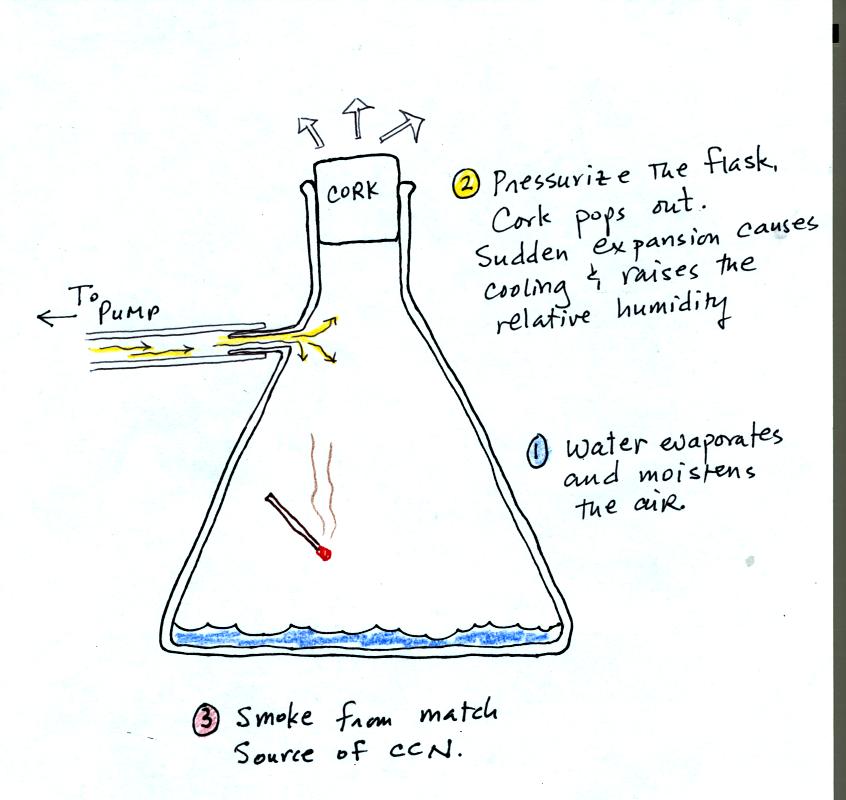 CORK
② Pressurize the flask,
Cork pops out.
Sudden expansion causes
cooling & raises the
relative humidity
To
Pump
① Water evaporates
and moistens
the air.
③ Smoke from match
Source of CCN.